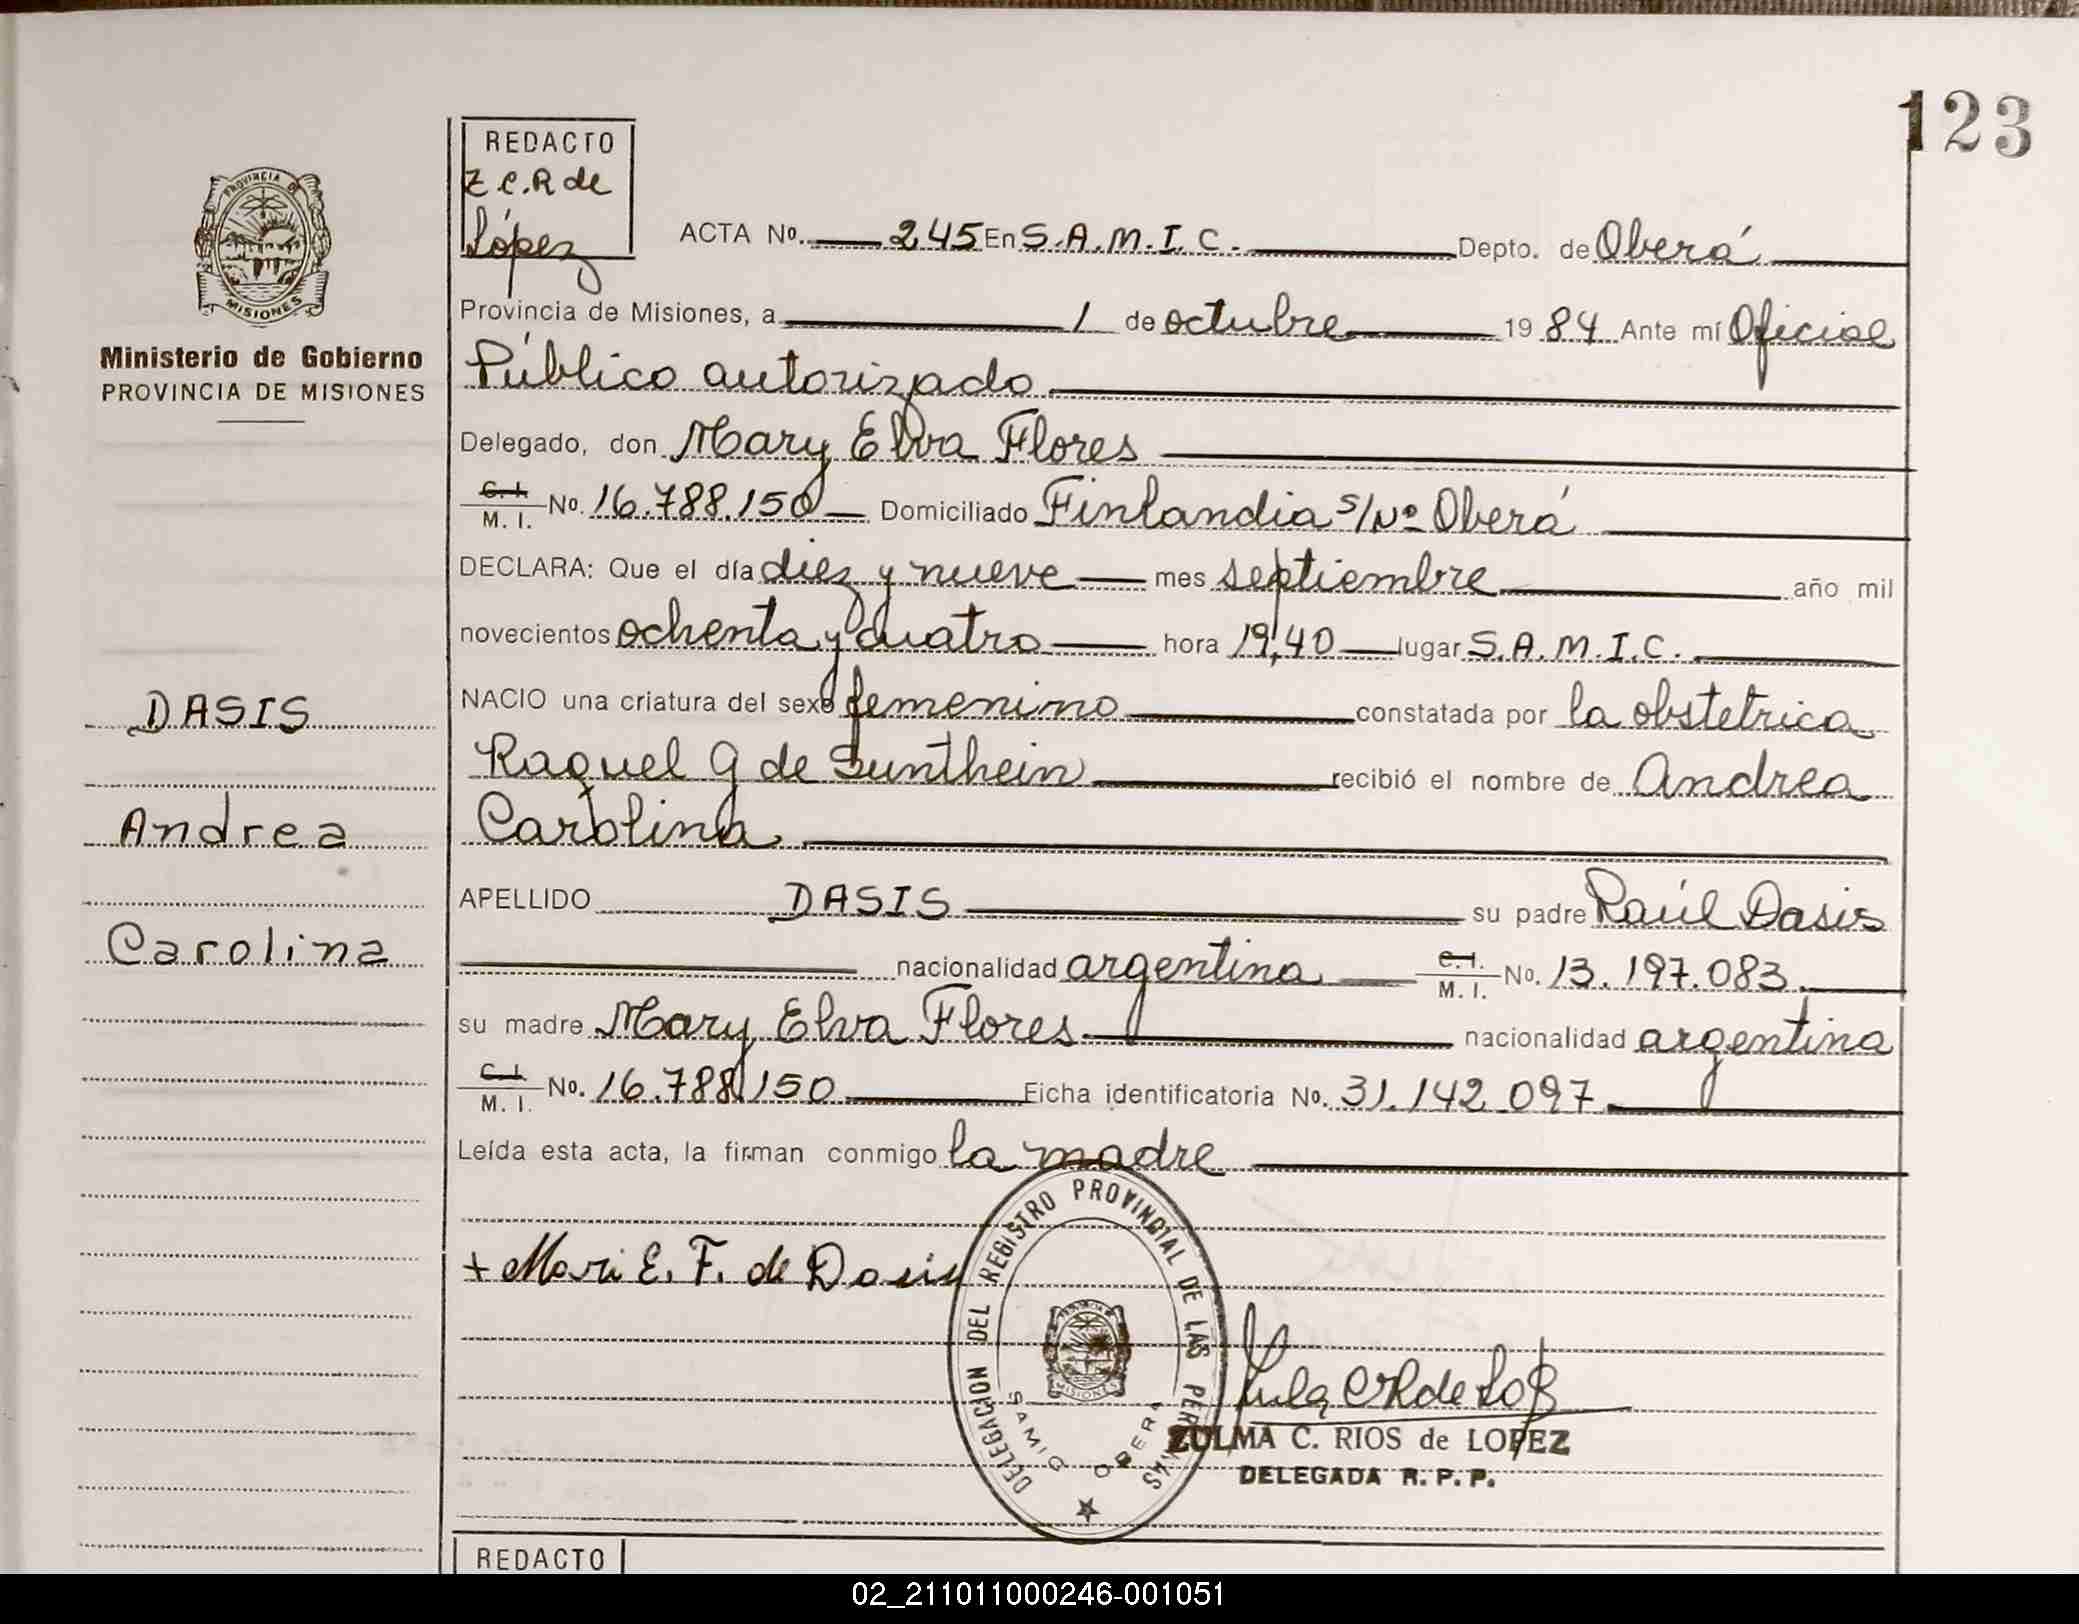 123
REDACTO
Z.C.R de
López
ACTA No. 245 En S.A.M.I.C. Depto. de Oberá
Provincia de Misiones, a 1 de octubre 19 84 Ante mí Oficial
Público autorizado
Delegado, don Mary Elva Flores
C. I. M. I. No. 16.788.150 Domiciliado Finlandia s/Nº Oberá
DECLARA: Que el día diez y nueve mes septiembre año mil
novecientos ochenta y cuatro hora 19,40 lugar S.A.M.I.C.
NACIO una criatura del sexo femenino constatada por la obstetrica
Raquel G de Sunthein recibió el nombre de Andrea
Carolina
APELLIDO DASIS su padre Raúl Dasis
nacionalidad argentina C. I. M. I. No. 13.197.083
su madre Mary Elva Flores nacionalidad argentina
C. I. M. I. No. 16.788.150 Ficha identificatoria No. 31.142.097
Leída esta acta, la firman conmigo la madre
+ Mari E. F. de Dasis
DELEGACION DEL REGISTRO PROVINCIAL DE LAS PERSONAS
SAMIC OBERA
MISIONES
ZULMA C. RIOS de LOPEZ
DELEGADA R. P. P.
REDACTO
PROVINCIA DE
MISIONES
Ministerio de Gobierno
PROVINCIA DE MISIONES
DASIS
Andrea
Carolina
02_211011000246-001051